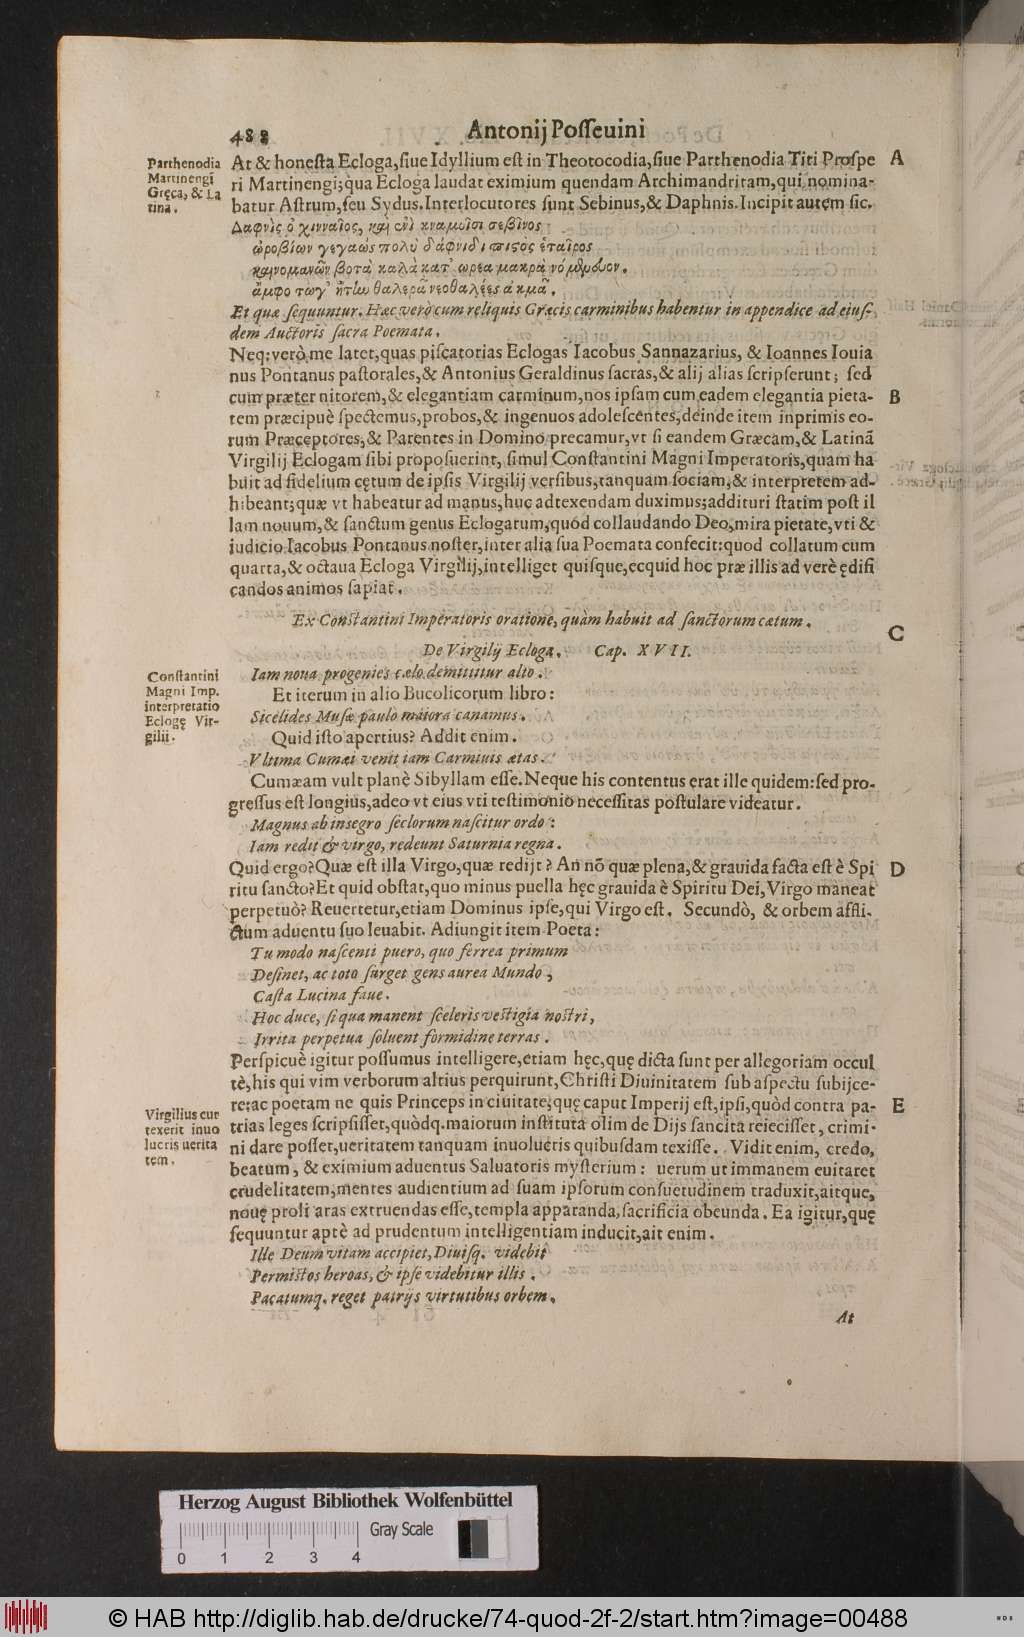 488
Antonij Posseuini
Parthenodia
Martinengi
Gręca, & La
tina.
At & honesta Ecloga, siue Idyllium est in Theotocodia, siue Parthenodia Titi Prospe
ri Martinengi; qua Ecloga laudat eximium quendam Archimandritam, qui nomina-
batur Astrum, seu Sydus. Interlocutores sunt Sebinus, & Daphnis. Incipit autem sic.
A
Δαφνὶς ὁ χινναῖος, καὶ σεβῖνος
ὠροβίων γεγαὼς πολὺ δάφνιδι πιστὸς ἑταῖρος
βοτὰ καλὰ κατ' ώρεα μακρὰ
ἄμφο τωγ' θαλερᾶ νεοθαλέες ἀκμᾶ.
Et quæ sequuntur. Hæc verò cum reliquis Græcis carminibus habentur in appendice ad eius-
dem Auctoris sacra Poemata.
Neq; verò me latet, quas piscatorias Eclogas Iacobus Sannazarius, & Ioannes Iouia
nus Pontanus pastorales, & Antonius Geraldinus sacras, & alij alias scripserunt; sed
cum præter nitorem, & elegantiam carminum, nos ipsam cum eadem elegantia pieta-
tem præcipuè spectemus, probos, & ingenuos adolescentes, deinde item inprimis eo-
rum Præceptores, & Parentes in Domino precamur, vt si eandem Græcam, & Latinã
Virgilij Eclogam sibi proposuerint, simul Constantini Magni Imperatoris, quam ha
buit ad fidelium cętum de ipsis Virgilij versibus, tanquam sociam, & interpretem ad-
hibeant; quæ vt habeatur ad manus, huc adtexendam duximus; addituri statim post il
lam nouum, & sanctum genus Eclogarum, quod collaudando Deo, mira pietate, vti &
iudicio Iacobus Pontanus noster, inter alia sua Poemata confecit: quod collatum cum
quarta, & octaua Ecloga Virgilij, intelliget quisque, ecquid hoc præ illis ad verè ędifi
candos animos sapiat.
B
Ex Constantini Imperatoris oratione, quàm habuit ad sanctorum cætum.
C
De Virgilij Ecloga. Cap. XVII.
Constantini
Magni Imp.
interpretatio
Eclogę Vir-
gilii.
Iam noua progenies cælo demittitur alto.
Et iterum in alio Bucolicorum libro:
Sicelides Musæ paulo maiora canamus.
Quid isto apertius? Addit enim.
Vltima Cumæi venit iam Carminis ætas.
Cumæam vult planè Sibyllam esse. Neque his contentus erat ille quidem: sed pro-
gressus est longius, adeo vt eius vti testimonio necessitas postulare videatur.
Magnus ab insegro seclorum nascitur ordo:
Iam redit & virgo, redeunt Saturnia regna.
Quid ergo? Quæ est illa Virgo, quæ redijt? An nō quæ plena, & grauida facta est è Spi
ritu sancto? Et quid obstat, quo minus puella hęc grauida è Spiritu Dei, Virgo maneat
perpetuò? Reuertetur, etiam Dominus ipse, qui Virgo est. Secundò, & orbem affli-
ctum aduentu suo leuabit. Adiungit item Poeta:
D
Tu modo nascenti puero, quo ferrea primum
Desinet, ac toto surget gens aurea Mundo,
Casta Lucina faue.
Hoc duce, si qua manent sceleris vestigia nostri,
Irrita perpetua soluent formidine terras.
Perspicuè igitur possumus intelligere, etiam hęc, quę dicta sunt per allegoriam occul
tè, his qui vim verborum altius perquirunt, Christi Diuinitatem sub aspectu subijce-
re: ac poetam ne quis Princeps in ciuitate, quę caput Imperij est, ipsi, quòd contra pa-
trias leges scripsisset, quòdq. maiorum instituta olim de Dijs sancita reiecisset, crimi-
ni dare posset, ueritatem tanquam inuolucris quibusdam texisse. Vidit enim, credo,
beatum, & eximium aduentus Saluatoris mysterium: uerum ut immanem euitaret
crudelitatem, mentes audientium ad suam ipsorum consuetudinem traduxit, aitque,
nouę proli aras extruendas esse, templa apparanda, sacrificia obeunda. Ea igitur, quę
sequuntur aptè ad prudentum intelligentiam inducit, ait enim.
E
Virgilius cur
texerit inuo
lucris uerita
tem.
Ille Deum vitam accipiet, Diuisq. videbit
Permistos heroas, & ipse videbitur illis.
Pacatumq. reget patrijs virtutibus orbem.
At
Herzog August Bibliothek Wolfenbüttel
Gray Scale
0 1 2 3 4
© HAB http://diglib.hab.de/drucke/74-quod-2f-2/start.htm?image=00488